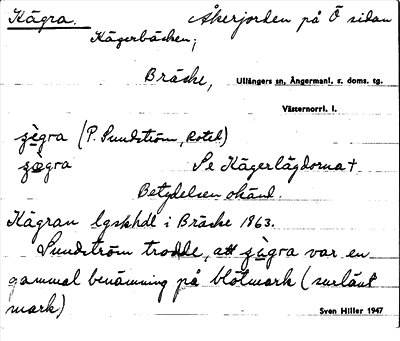 Kägra. Åkerjorden på Ö sidan
Kägerbäcken;
Bräcke, Ullångers sn, Ångermanl. s. doms. tg.
Västernorrl. l.
(P. Sundström, Rotel)
Se Kägerlägdorna +
Betydelsen okänd.
Kägran lgskhdl i Bräcke 1863.
Sundström trodde, att var en
gammal benämning på blötmark (surlänt
mark) Sven Hiller 1947